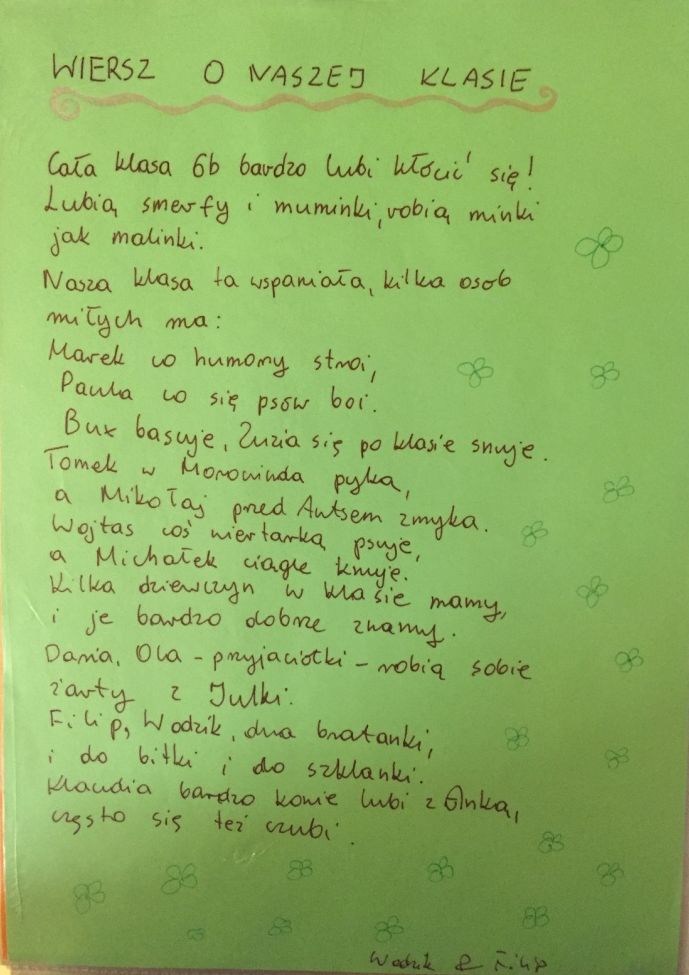 WIERSZ O NASZEJ KLASIE
Cała klasa 6b bardzo lubi kłócić się!
Lubią smerfy i muminki, robią minki
jak malinki.
Nasza klasa ta wspaniała, kilka osob
miłych ma:
Marek co humory stroi,
Paula co się psów boi.
Bux basuje, Zuzia się po klasie snuje.
Tomek w Morowinda pyka,
a Mikołaj przed Antsem zmyka.
Wojtas coś wiertarką psuje,
a Michałek ciągle knuje.
Kilka dziewczyn w klasie mamy,
i je bardzo dobrze znamy.
Daria, Ola - przyjaciółki - robią sobie
żarty z Julki.
Filip, Wodzik, dwa bratanki,
i do bitki i do szklanki.
Klaudia bardzo konie lubi z Anka,
często się też czubi.
Wodzik & Filip